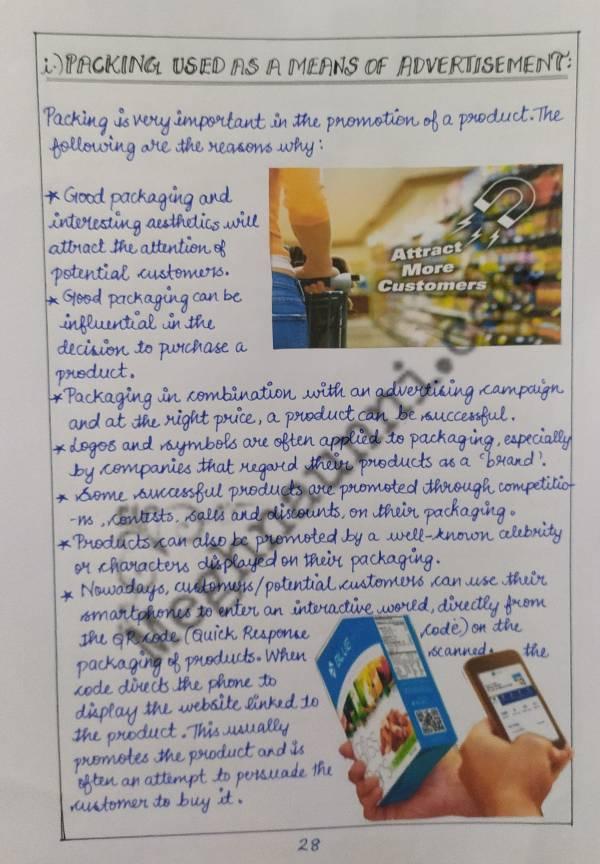 i.) PACKING USED AS A MEANS OF ADVERTISEMENT:
Packing is very important in the promotion of a product. The
following are the reasons why:
* Good packaging and
interesting aesthetics will
attract the attention of
potential customers.
Attract
More
Customers
* Good packaging can be
influential in the
decision to purchase a
product.
* Packaging in combination with an advertising campaign
and at the right price, a product can be successful.
* Logos and symbols are often applied to packaging, especially
by companies that regard their products as a 'brand'.
* Some successful products are promoted through competitio-
-ns, contests, sales and discounts, on their packaging.
* Products can also be promoted by a well-known celebrity
or characters displayed on their packaging.
* Nowadays, customers/potential customers can use their
smartphones to enter an interactive world, directly from
the QR code (Quick Response code) on the
packaging of products. When scanned, the
code directs the phone to
display the website linked to
the product. This usually
promotes the product and is
often an attempt to persuade the
customer to buy it.
BLUE
28